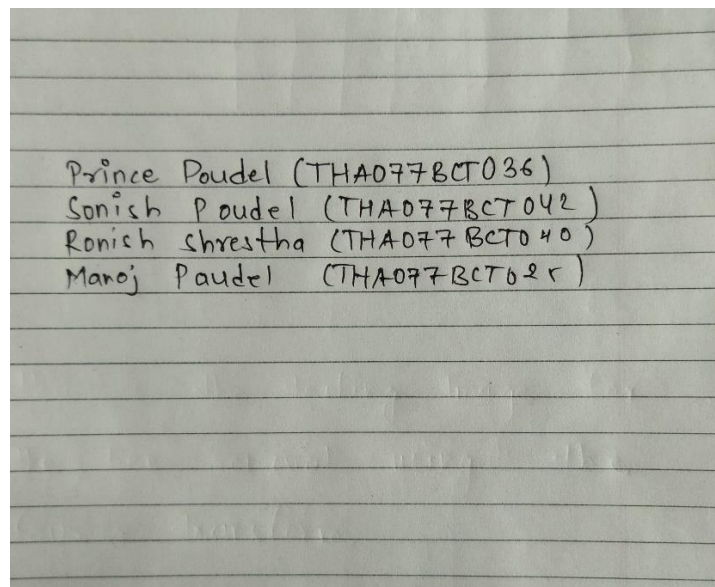 Prince Poudel (THA077BCT036)
Sonish Poudel (THA077BCT042)
Ronish shrestha (THA077BCT040)
Manoj Paudel